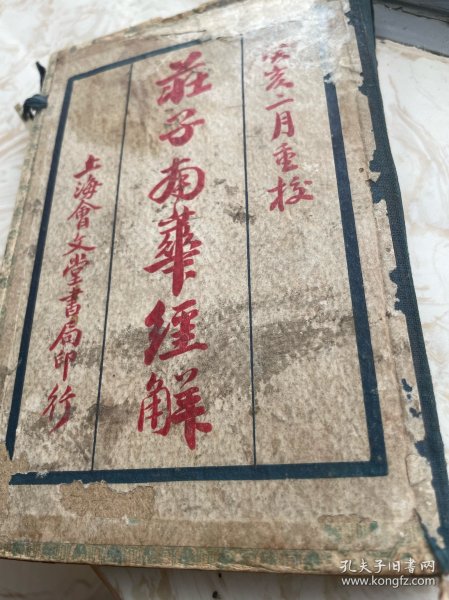 癸亥二月重校
莊子南華經解
上海會文堂書局印行
孔夫子旧书网
www.kongfz.com